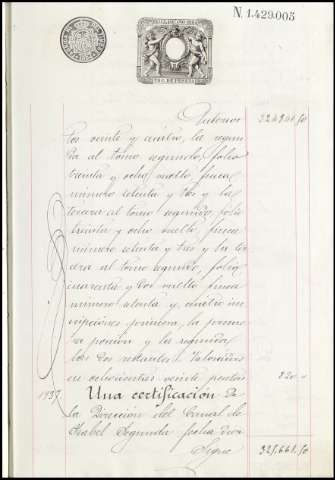 N. 1.429.005
Anterior 324846,50
tos veinte y cuatro, la segun
da al tomo segundo, folio
treinta y ocho vuelto, finca
número setenta y tres y la
tercera al tomo segundo, folio
treinta y ocho vuelto, finca
número setenta y tres y la ter
cera al tomo segundo, folio
cuarenta y dos vuelto finca
número setenta y cuatro ins
cripciones primera, la prime
ra porción y la segunda
las dos restantes. Valoradas
en ochocientas veinte pesetas 820
1937 Una certificación de
la Dirección del Canal de
Isabel Segunda fecha diez
Sigue 325.666,50